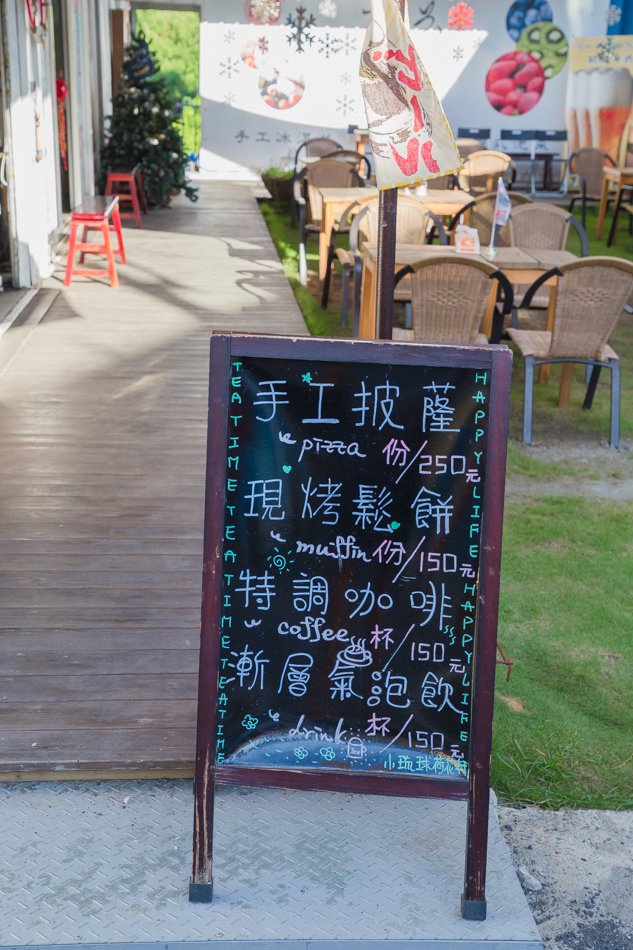 手工冰
手工披薩
pizza 份/250元
現烤鬆餅
muffin 份/150元
特調咖啡
coffee 杯/150元
漸層氣泡飲
drink 杯/150元
小琉球
TEA TIME TEA TIME TEA TIME
HAPPY LIFE HAPPY LIFE